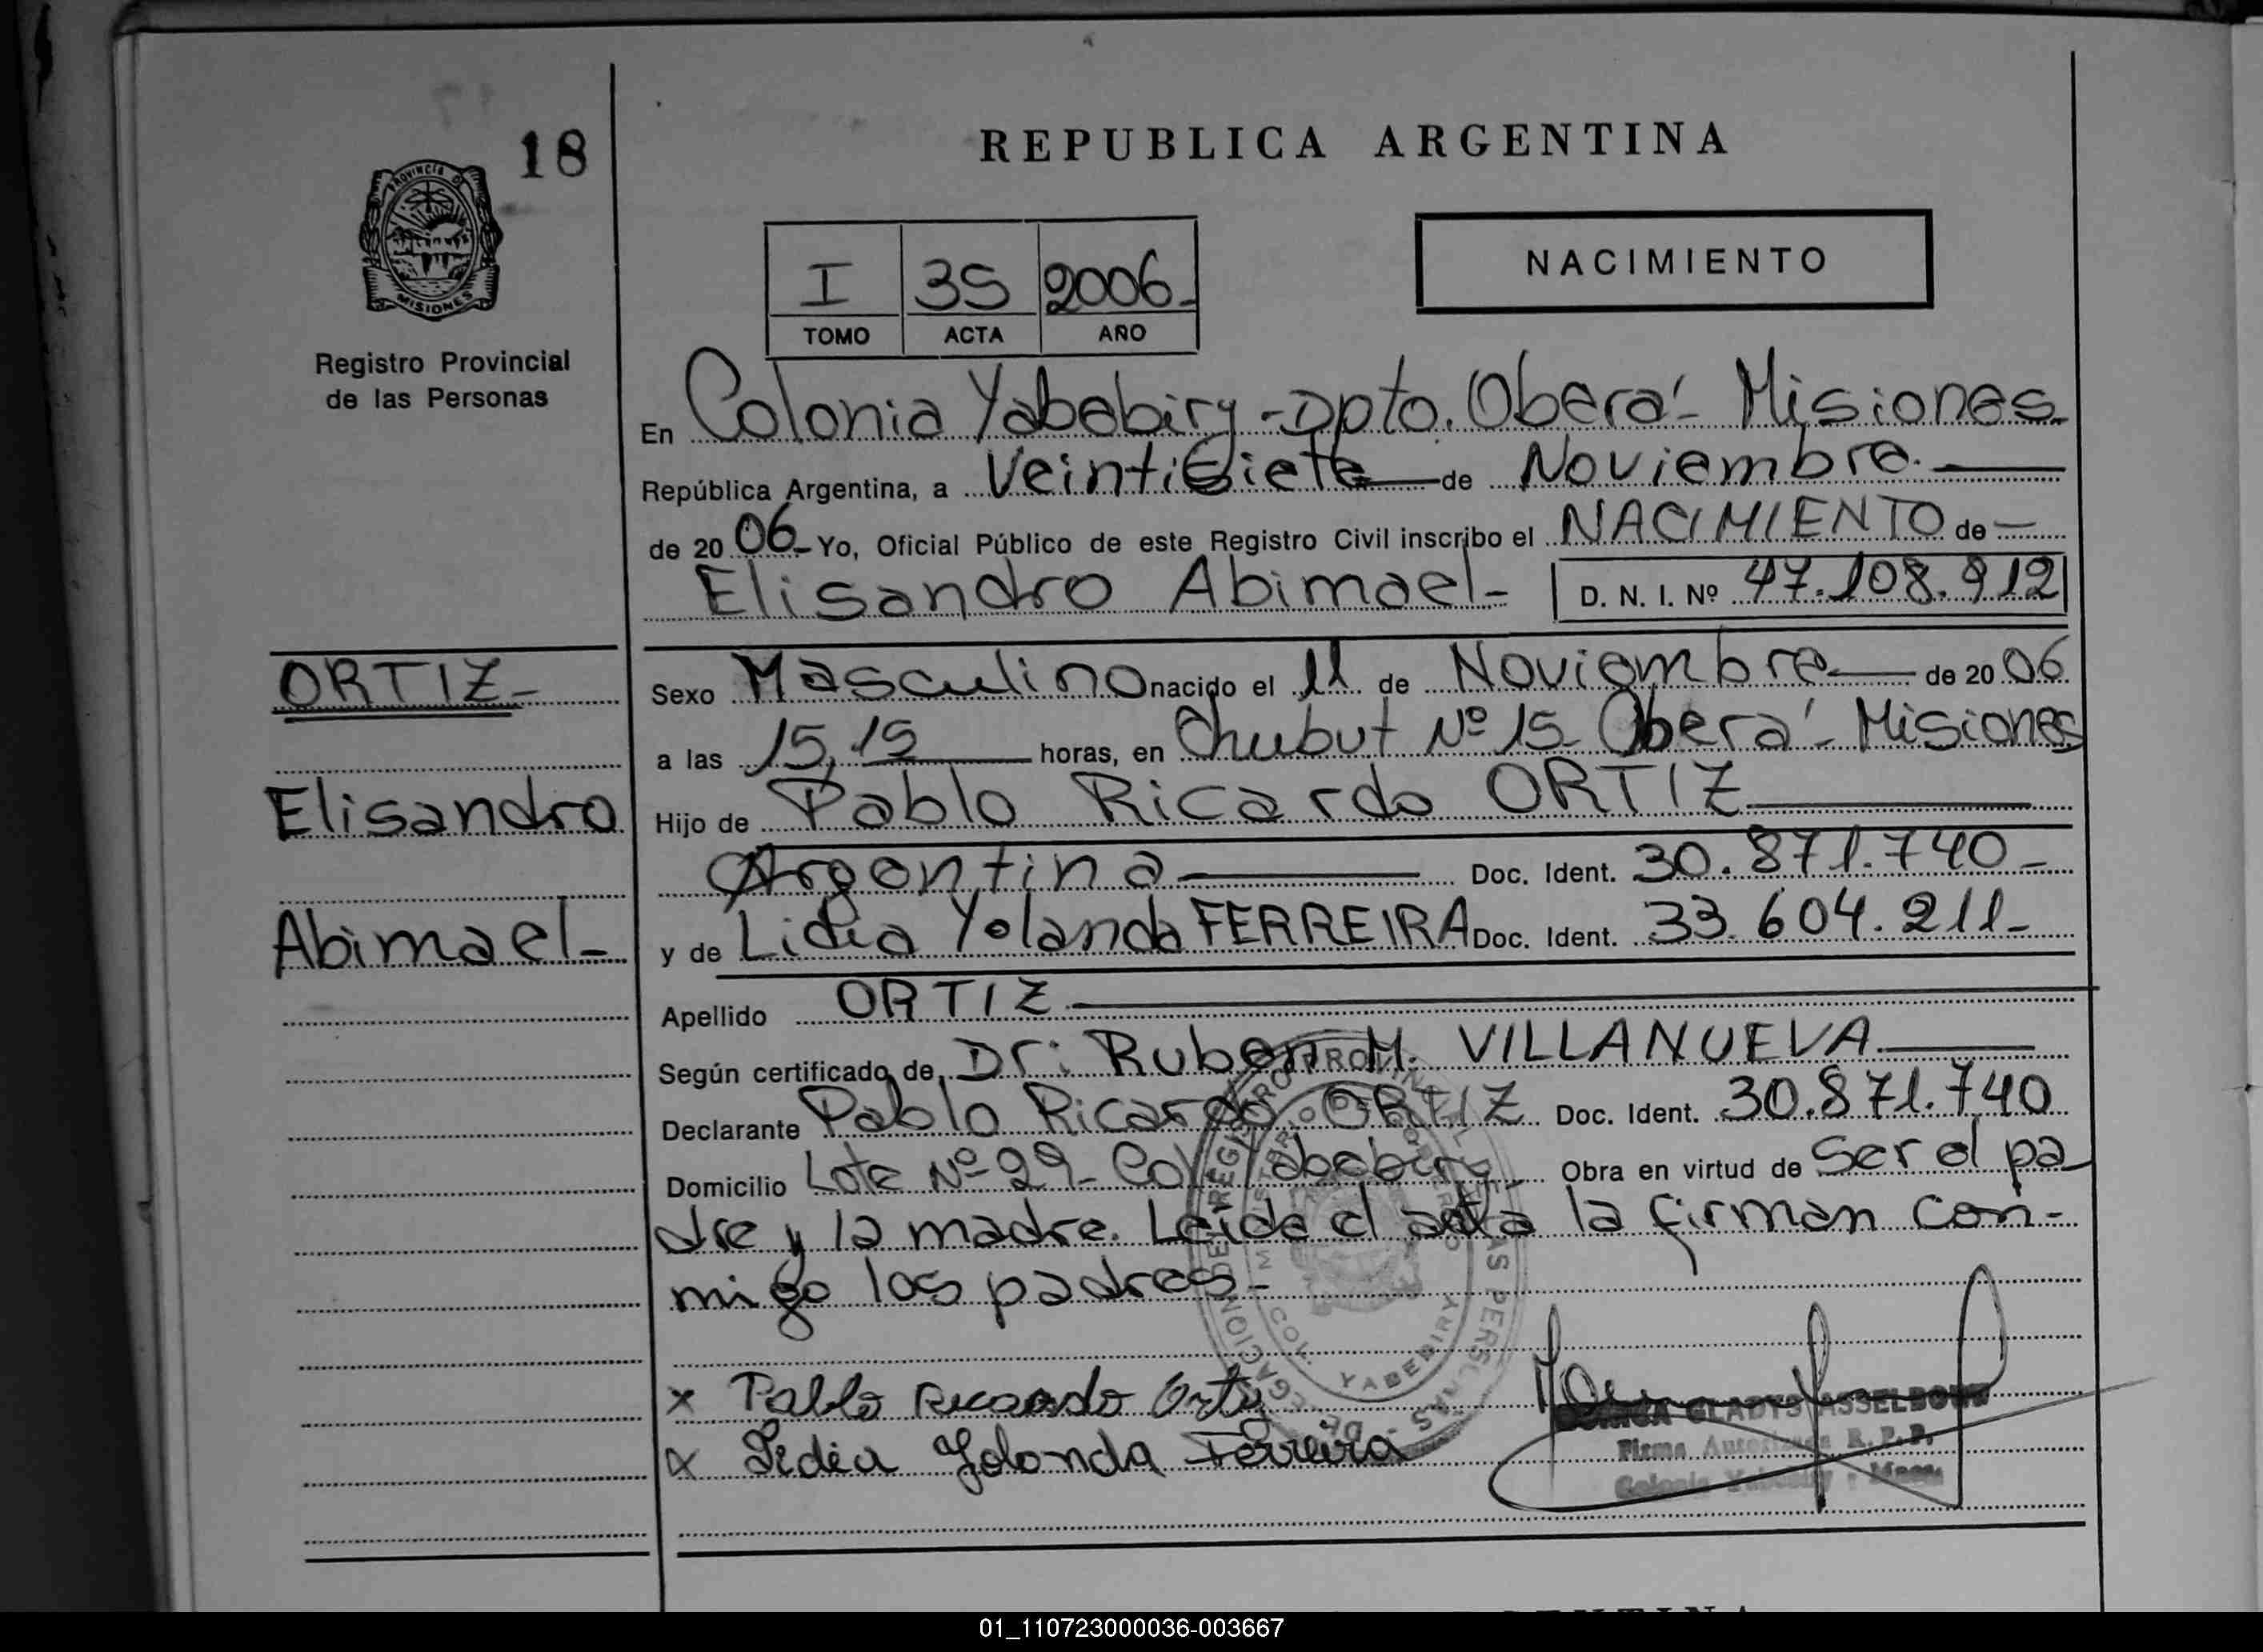 18
REPUBLICA ARGENTINA
PROVINCIA D
MISIONES
NACIMIENTO
I 35 2006-
TOMO ACTA AÑO
Registro Provincial
de las Personas
En Colonia Yabebiry - Dpto. Oberá - Misiones
República Argentina, a Veintisiete de Noviembre.
de 20 06- Yo, Oficial Público de este Registro Civil inscribo el NACIMIENTO de
Elisandro Abimael- D. N. I. Nº 47.108.912
ORTIZ-
Sexo Masculino nacido el 11 de Noviembre de 20 06
a las 15,15 horas, en Chubut Nº 15 Oberá - Misiones
Elisandro
Hijo de Pablo Ricardo ORTIZ
Argentina Doc. Ident. 30.871.740-
Abimael-
y de Lidia Yolanda FERREIRA Doc. Ident. 33.604.211-
Apellido ORTIZ
Según certificado de Dr: Ruben M. VILLANUEVA
Declarante Pablo Ricardo ORTIZ Doc. Ident. 30.871.740
Domicilio Lote Nº 29- Col. Yabebiry- Obra en virtud de Ser el pa
dre y la madre. Leída el acta la firman con-
migo los padres-
COL. YABEBIRY
x Pablo Ricardo Ortiz
x Lidia Yolanda Ferreira
GLADYS ASSELBORN
Firma Autorizada R. P. P.
Colonia Yabebiry - Mnes.
01_110723000036-003667